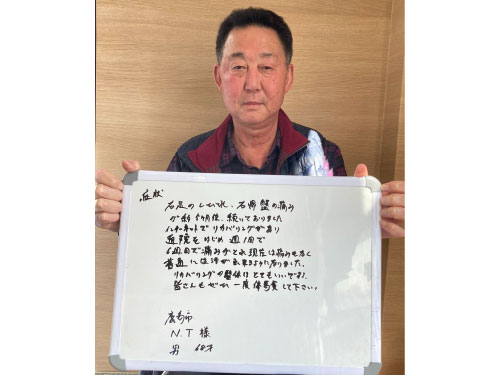 症状
右足のしびれ、右骨盤の痛み
が約5ヶ月位、続いておりました
インターネットでリカバリングがあり
通院をはじめ 週1回で
6回目で痛みがとれ現在は痛みもなく
普通に生活が出来るようになりました。
リカバリングの整体はとてもいいですよ!
皆さんもぜひ一度体感して下さい。
N.T 様
男 68才